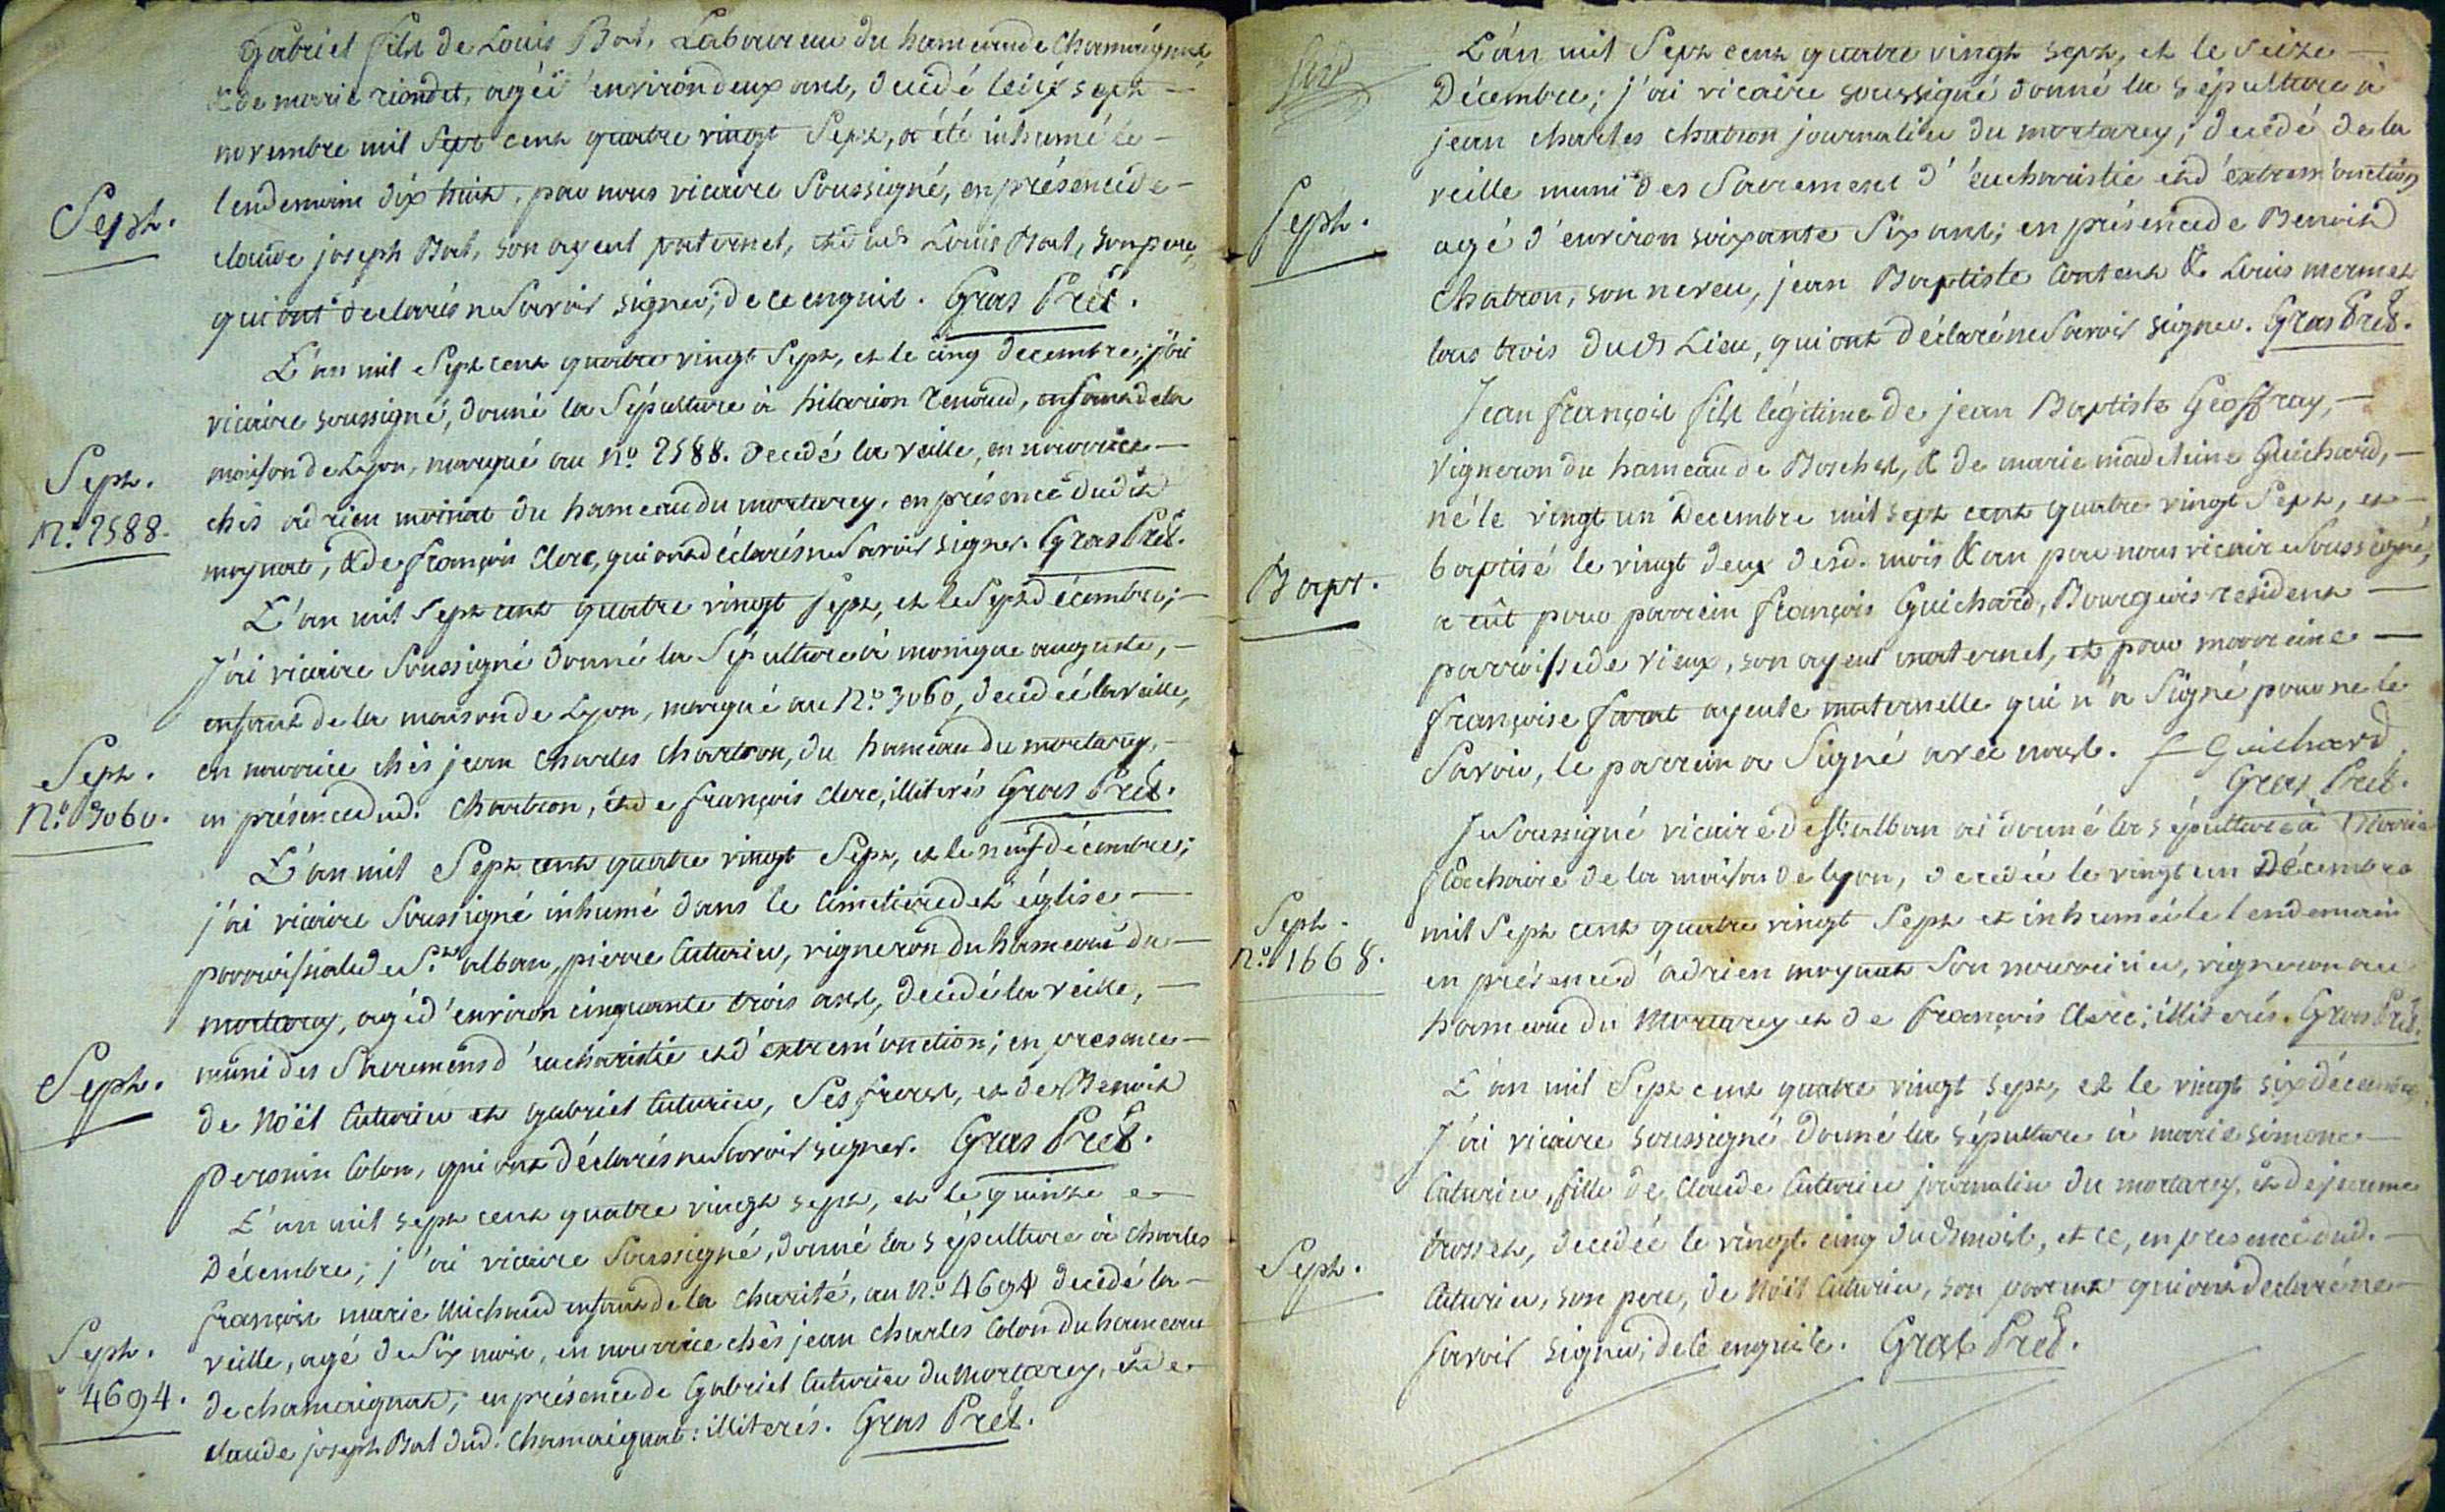 Gabriel fils de Louis Bal, Laboureur du hameau de Chamaignat,
& de marie riondet, agéé environ deux ans, decedé le dix sept
novembre mil Sept cent quatre vingt Sept, a été inhumé le
lendemain dix huit, par nous vicaire Soussigné, en présence de
claude joseph Bal, son ayeul paternel, et dud Louis Bal, son pere,
qui ont declarés ne Savoir signer; de ce enquis. Gras Pret.
Sept.
L'an mil Sept cent quatre vingt Sept, et le cinq decembre; j'ai
vicaire soussigné, donné la Sépulture à hilarion renaud, enfant de la
maison de Lyon, marqué au n.º 2588. decedé la veille, en nourrice
chés adrien moinat du hameau du mortarey, en présence dudit
moynat, & de françois Clerc, qui ont déclarés ne Savoir signer. Gras Pret.
Sept.
N.º 2588.
L'an mil Sept cent quatre vingt Sept, et le Sept décembre;
J'ai vicaire Soussigné donné la Sépulture à monique auguste,
enfant de la maison de Lyon, marqué au N.º 3060, decedéé la veille,
en nourrice chés jean Charles Chartron, du hameau du mortarey,
en présence dud. Chartron, et de françois clerc, illiterés Gras Pret.
Sept.
N.º 3060.
L'an mil Sept cent quatre vingt Sept, et le neuf décembre;
j'ai vicaire Soussigné inhumé dans le Cimetiere de l'église
parroissiale de S.t alban, pierre Cuturier, vigneron du hameau du
mortarey, agé d'environ cinquante trois ans, decédé la veille,
muni des Sacremens d'eucharistie et d'extrem'onction; en presence
de Noël Cuturier et Gabriel Cuturier, Ses freres, et de Benoit
Peronin Colon, qui ont déclarés ne Savoir signer. Gras Pret.
Sept.
L'an mil sept cent quatre vingt sept, et le quinze
Décembre; j'ai vicaire Soussigné, donné la sépulture à Charles
françois marie Michaud enfant de la Charité, au N.º 4694 decédé la
veille, agé de Six mois, en nourrice chés jean Charles Colon du hameau
de chamaignat; en présence de Gabriel Cuturier du Mortarey, et de
claude joseph Bal dud. Chamaignat: illiterés. Gras Pret.
Sept.
4694.
L'an mil Sept cent quatre vingt sept, et le seize
Décembre; j'ai vicaire soussigné donné la sépulture à
jean charles chatron journalier du mortarey; decedé de la
veille muni des Sacremens d'eucharistie et d'extrem'onction,
agé d'environ soixante Six ans; en présence de Benoit
Chatron, son neveu, jean Baptiste Content & Louis mermet
tous trois dud Lieu, qui ont déclaré ne Savoir signer. Gras Pret.
Sept.
Jean françois fils légitime de jean Baptiste Geoffray,
Vigneron du hameau de Boches, & de marie madeleine Guichard,
né le vingt un Decembre mil sept cent quatre vingt Sept, et
baptisé le vingt deux desd. mois & an par nous vicaire Soussigné,
a eût pour parrein françois Guichard, Bourgeois resident
parroisse de vieux, son ayeul maternel, et pour marreine
françoise farat ayeule maternelle qui n'a Signé pour ne le
Savoir, le parrein a Signé avec nous. f Guichard
Gras Pret.
Bapt.
Je Soussigné vicaire de St. alban ai donné la sépulture à Marie
flachaire de la maison de lyon, decedéé le vingt un Décembre
mil Sept cent quatre vingt Sept et inhuméé le lendemain
en présence d'adrien moynat Son nourricier, vigneron au
hameau du Mortarey et de françois Clerc; illiterés. Gras Pret.
Sept.
n.º 1668.
L'an mil Sept cent quatre vingt sept, et le vingt six décembre
J'ai vicaire soussigné donné la sépulture à marie simone
Cuturier, fille de Claude Cuturier journalier du mortarey, et de jeanne
trosset, decedéé le vingt cinq dud mois, et ce, en presence dud.
Cuturier, son pere, de Noël Cuturier, son parent qui ont declaré ne
Savoir signer; de ce enquis. Gras Pret.
Sept.